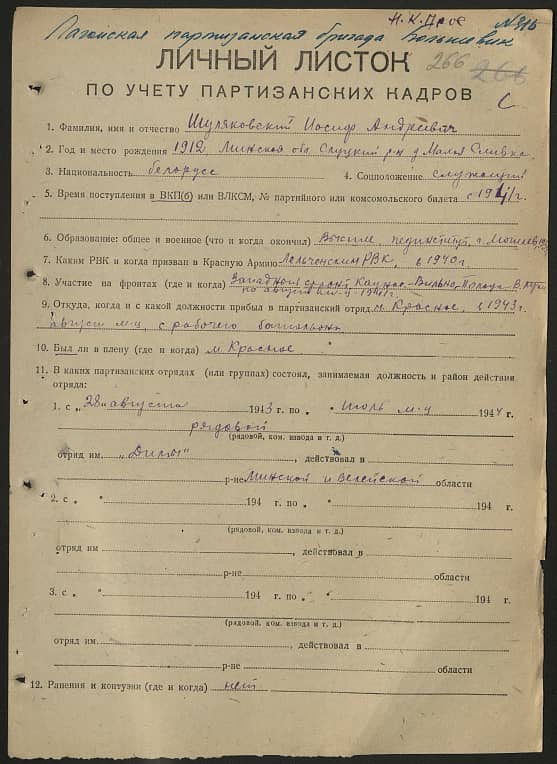 №316
Лагойская партизанская бригада Большевик
ЛИЧНЫЙ ЛИСТОК 266
ПО УЧЕТУ ПАРТИЗАНСКИХ КАДРОВ
1. Фамилия, имя и отчество Шуляковский Иосиф Андреевич
2. Год и место рождения 1912 Минская обл Слуцкий р-н д. Малая Сливка
3. Национальность белорусс 4. Соцположение служащий
5. Время поступления в ВКП(б) или ВЛКСМ, № партийного или комсомольского билета с 1941 г.
6. Образование: общее и военное (что и когда окончил) Высшее пединститут, г. Могилев
7. Каким РВК и когда призван в Красную Армию Лельченским РВК, в 1940 г.
8. Участие на фронтах (где и когда) Западный фронт Каунас-Вильно, Полоцк В. Луки
по август м-ц 1941 г.
9. Откуда, когда и с какой должности прибыл в партизанский отряд м. Красное, в 1943 г.
август м-ц, с рабочего батальона
10. Был ли в плену (где и когда) м. Красное
11. В каких партизанских отрядах (или группах) состоял, занимаемая должность и район действия
отряда:
1. с „28“ августа 1943 г. по „ “ июль м-ц 1944 г.
рядовой
(рядовой, ком. взвода и т. д.)
отряд им. , действовал в
р-не Минской и Велейской области
2. с „ “ 194 г. по „ “ 194 г.
(рядовой, ком. взвода и т. д.)
отряд им. , действовал в
р-не области
3. с „ “ 194 г. по „ “ 194 г.
(рядовой, ком. взвода и т. д.)
отряд им. , действовал в
р-не области
12. Ранения и контузии (где и когда) нет